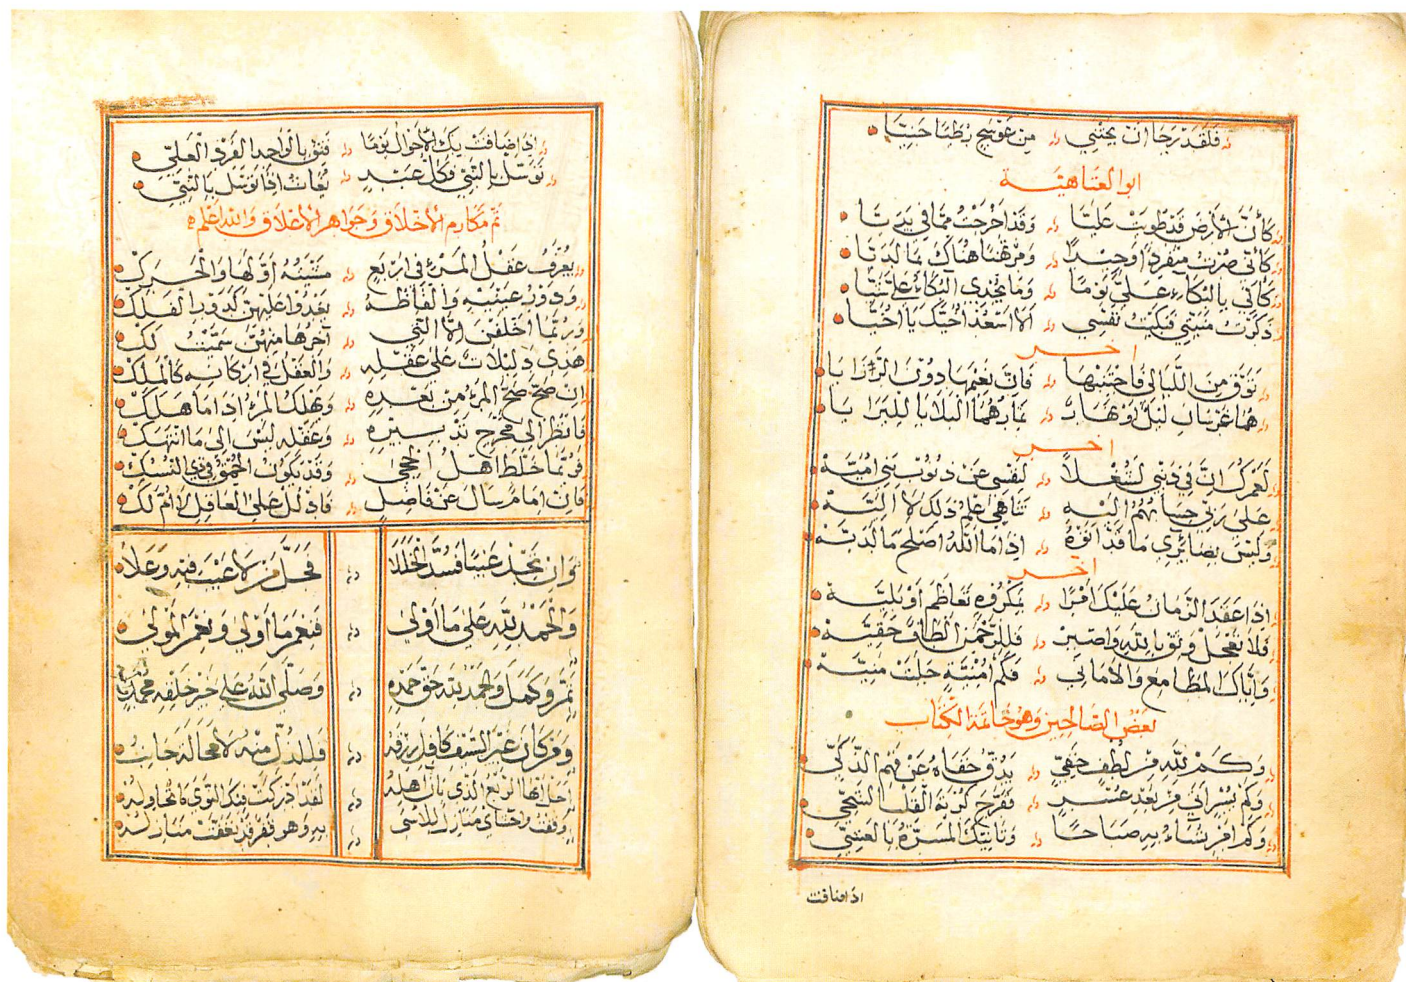 فلقد رجا ان يجتني من عوسج رطبا جنيا
ابو العتاهية
كأن الارض قد طويت عليا وقد اخرجت مما في يديا
كأني صرت منفردا وحيدا ومرتهنا هناك بما لديا
كأني بالبكاء علي يوما وما يجدي البكاء علي شيا
ذكرت منيتي فبكيت نفسي الا اسعد اخيك يا اخيا
اخر
توق من الليالي فاجتنبها فان نعيمها دون الرزايا
هما غرسان ليل او نهار البلايا للبرايا
اخر
لعمرك ان في ذنبي لشغلا لنفسي عن ذنوب بني اميه
على ربي حسابهم اليه تناهى علم ذلك لا اليه
وليس بضائري ما قد اتوه اذا ما الله اصلح ما لديه
اخر
اذا عقد الزمان عليك امرا بمكروه تعاظم او بليه
فلا تعجل وثق بالله واصبر فللرحمن الطاف خفيه
واياك المطامع والاماني فكم امنية جلبت منيه
لبعض الصالحين وهو خاتمة الكتاب
وكم لله من لطف خفي يدق خفاه عن فهم الذكي
وكم يسر اتى من بعد عسر وفرج كربة القلب الشجي
وكم امر تساء به صباحا وتاتيك المسرة بالعشي
اذا ضاقت
اذا ضاقت بك الاحوال يوما فثق بالواحد الفرد العلي
توسل بالنبي فكل عبد يغاث اذا توسل بالنبي
تم مكارم الاخلاق وجواهر الاعلاق والله اعلم
يعرف عقل المرء في اربع مشيته اولها والحرك
ودور عينيه والفاظه بعد عليهن يدور الفلك
وربما اخلفن الا التي آخرها منهن سميت لك
هذي دليلات على عقله والعقل في اركانه كالملك
ان صح صح المرء من بعده ويهلك المرء اذا ما هلك
فانظر الى مخرج تدبيره وعقله ليس الى ما انتهك
فربما خلط اهل الحجى وقد يكون الحمق في ذي النسك
فان امام سال عن فاضل فادلل على العاقل لا ام لك
وان تجد عيبا فسد الخللا فجل من لا عيب فيه وعلا
والحمد لله على ما اولى فنعم ما اولى ونعم المولى
تم وكمل والحمد لله حق حمده وصلى الله على خير خلقه محمد
ومن كان غير السيف كافل رزقه فللذل منه لا محالة جانب
الربع الذي بان اهله لقد ادركت فيك النوى ما تحاوله
وقفت به وهو قفر قد عفت منازله